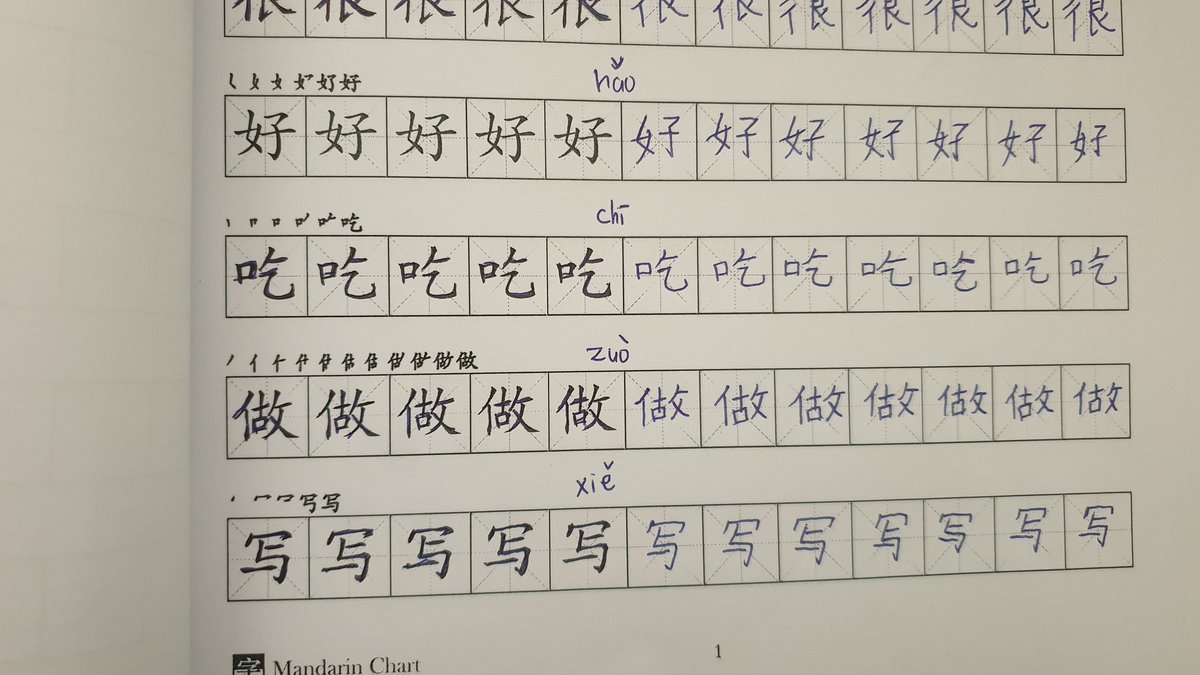 很很很很很很很很很很很很
hǎo
好好好好好好好好好好好好
chī
吃吃吃吃吃吃吃吃吃吃吃吃
zuò
做做做做做做做做做做做做
xiě
写写写写写写写写写写写写
字 Mandarin Chart 1